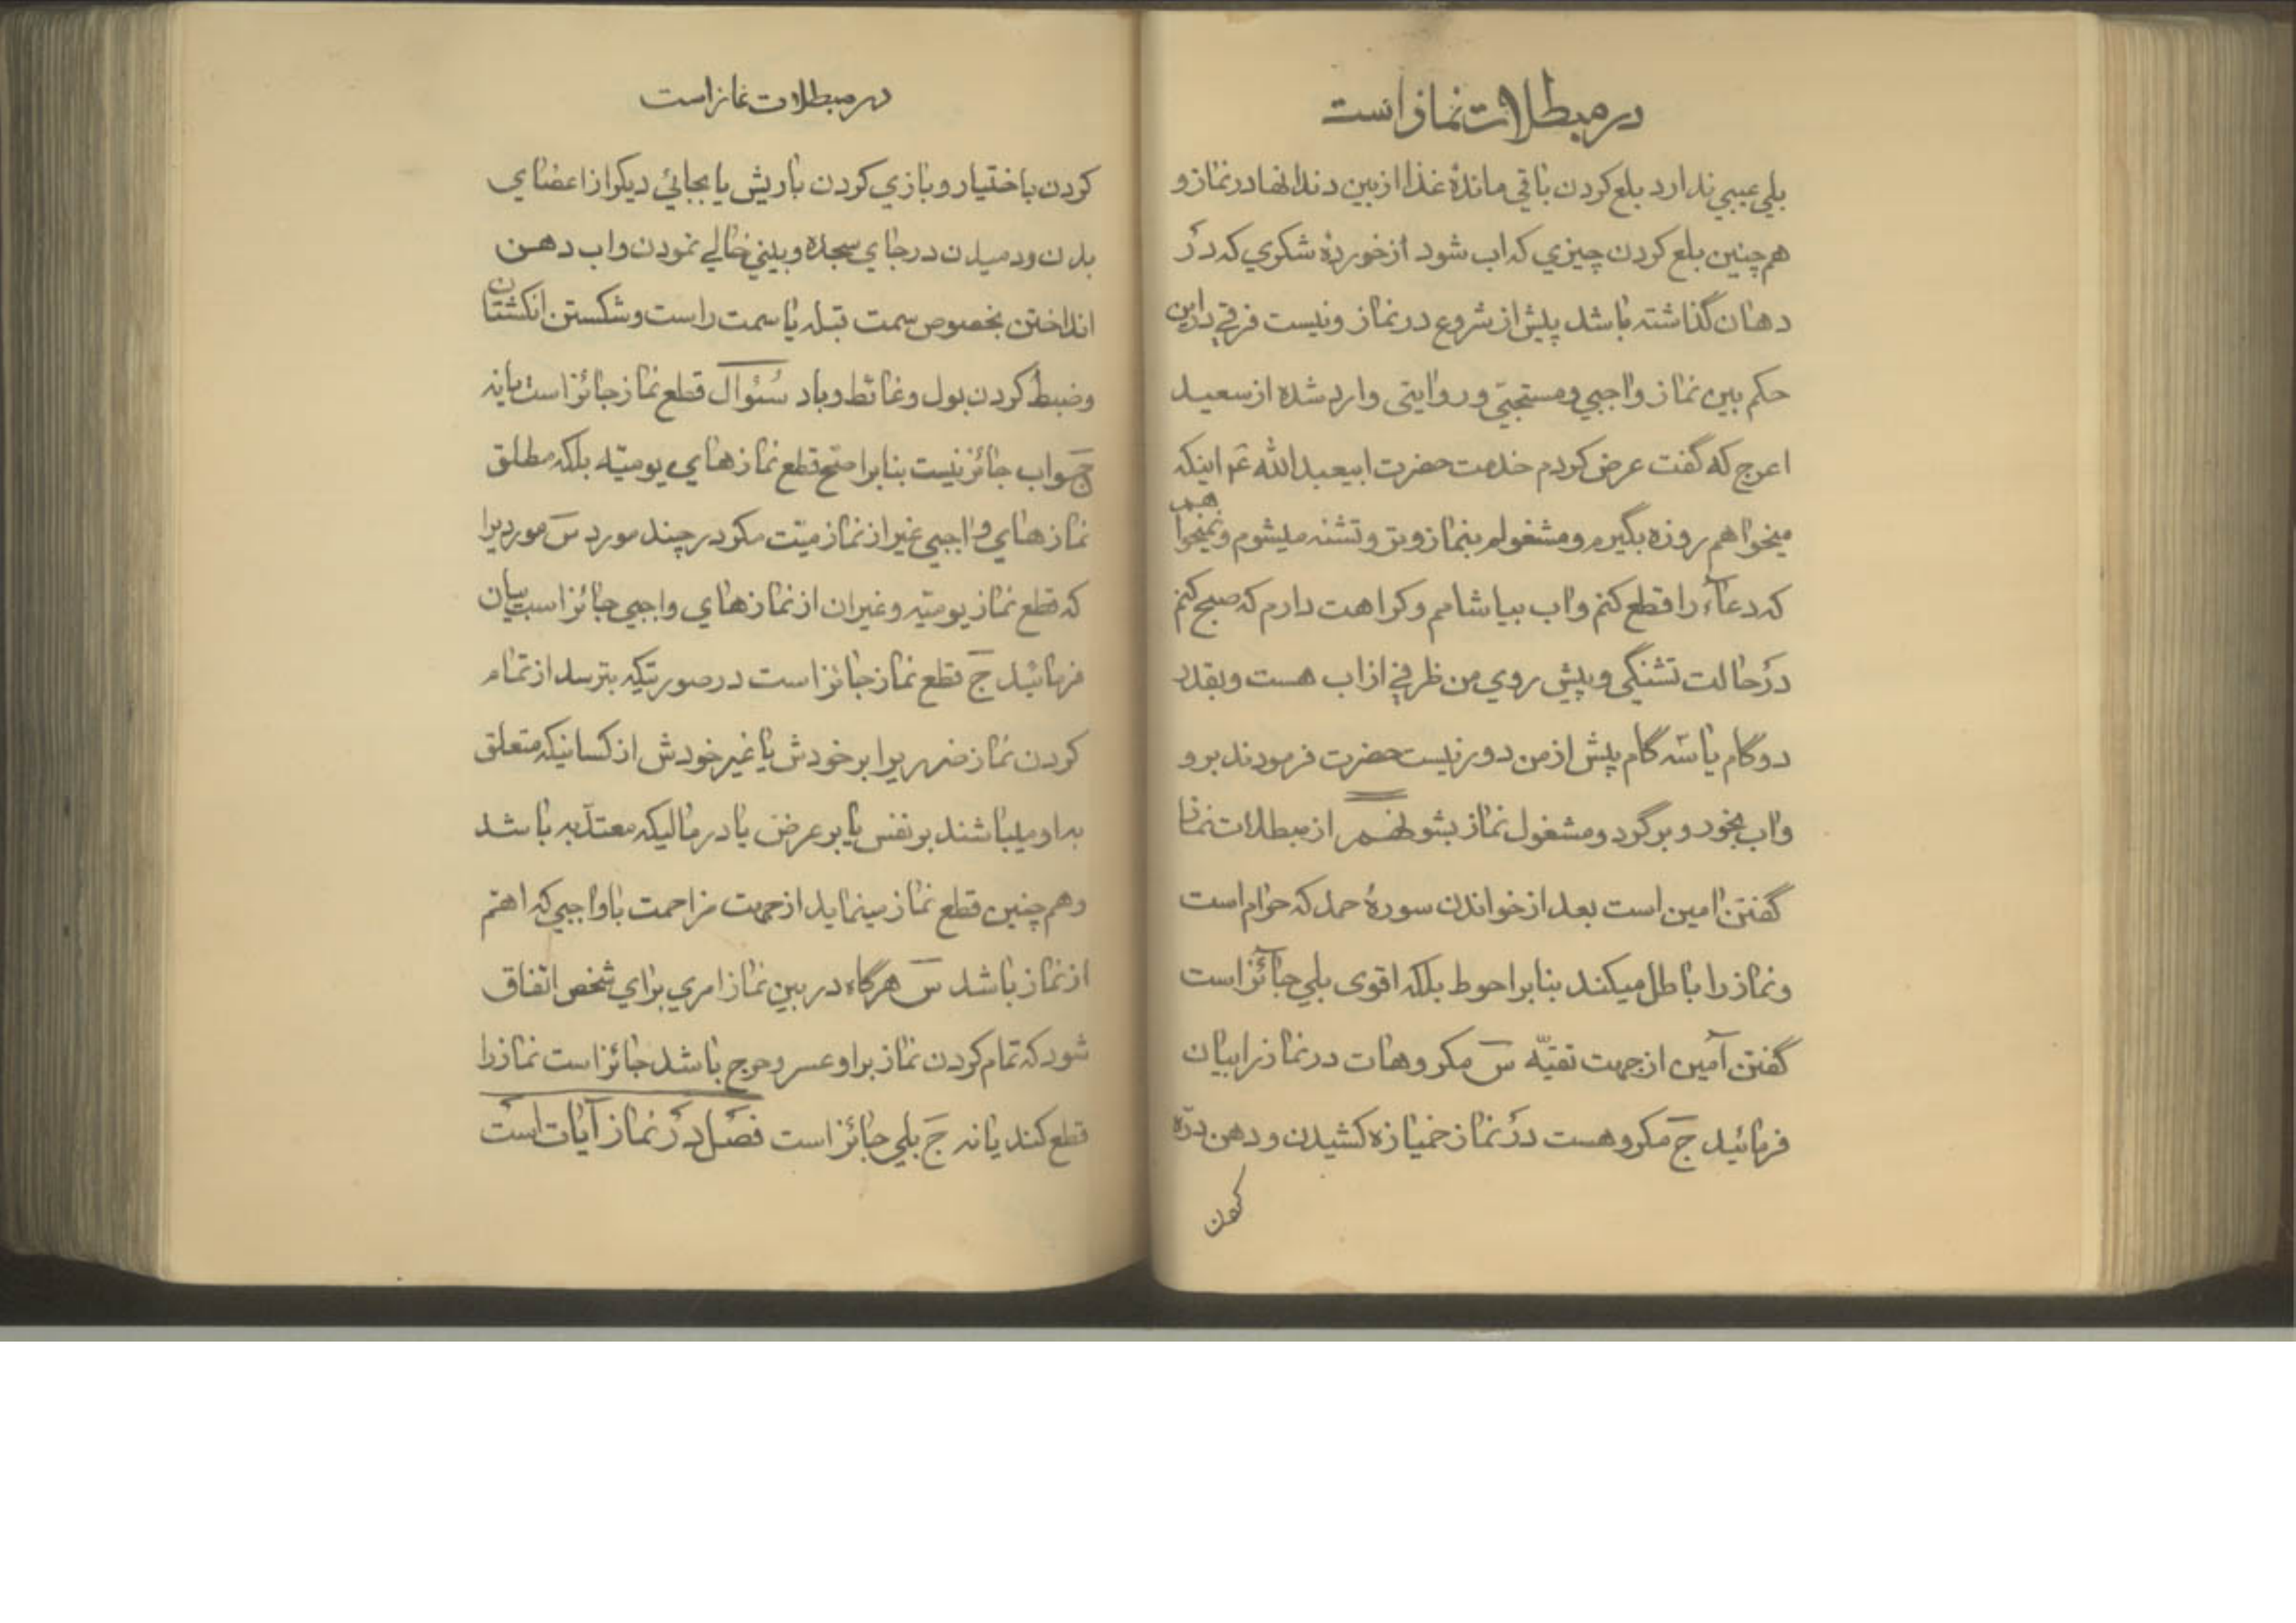 در مبطلات نماز است
بلي عيبي ندارد بلع كردن باقي ماندۀ غذا از بين دندانها در نماز و
هم چنين بلع كردن چيزي كه اب شود از خوردۀ شكري كه در
دهان گذاشته باشد پيش از شروع در نماز و نيست فرقي در اين
حكم بين نماز واجبي و مستحبّي و روايتى وارد شده از سعيد
اعرج كه گفت عرض كردم خدمت حضرت ابيعبد الله عٓم اينكه
ميخواهم روزه بگيرم و مشغولم بنماز وتر و تشنه ميشوم و نميخواهم
كه دعآء را قطع كنم و اب بياشامم و كراهت دارم كه صبح كنم
در حالت تشنگي و پيش روي من ظرفي از اب هست و بقدر
دو گام يا سه گام پيش از من دور نيست حضرت فرمودند برو
و اب بخور و برگرد و مشغول نماز بشو نهم از مبطلات نماز
گفتن امين است بعد از خواندن سورۀ حمد كه حرام است
و نماز را باطل ميكند بنابر احوط بلكه اقوى بلي جآئز است
گفتن آمين از جهت تقيّه سٓ مكروهات در نماز را بيان
فرمائيد جٓ مكروهست در نماز خميازه كشيدن و دهن درّه
كردن
در مبطلات نماز است
كردن باختيار و بازي كردن با ريش يا بجائي ديكر از اعضاي
بدن و دميدن در جاي سجده و بيني خالي نمودن و اب دهن
انداختن بخصوص سمت قبله يا سمت راست و شكستن انكشتان
و ضبط كردن بول و غائط و باد سُئوال قطع نماز جائز است يا نه
جٓواب جائز نيست بنابر اصحّ قطع نمازهاي يوميّه بلكه مطلق
نمازهاي واجبي غير از نماز ميّت مكر در چند مورد سٓ مورديرا
كه قطع نماز يوميّه و غير ان از نمازهاي واجبي جائز است بيان
فرمائيد جٓ قطع نماز جائز است در صورتيكه بترسد از تمام
كردن نماز ضرريرا بر خودش يا غير خودش از كسانيكه متعلق
به او ميباشند بر نفس يا بر عرض يا در ماليكه معتدّ به باشد
و هم چنين قطع نماز مينمايد از جهت مزاحمت با واجبي كه اهمّ
از نماز باشد سٓ هرگاه در بين نماز امري براي شخص اتّفاق
شود كه تمام كردن نماز بر او عسر و حرج باشد جائز است نماز را
قطع كند يا نه جٓ بلي جائز است فصل در نماز آيات است